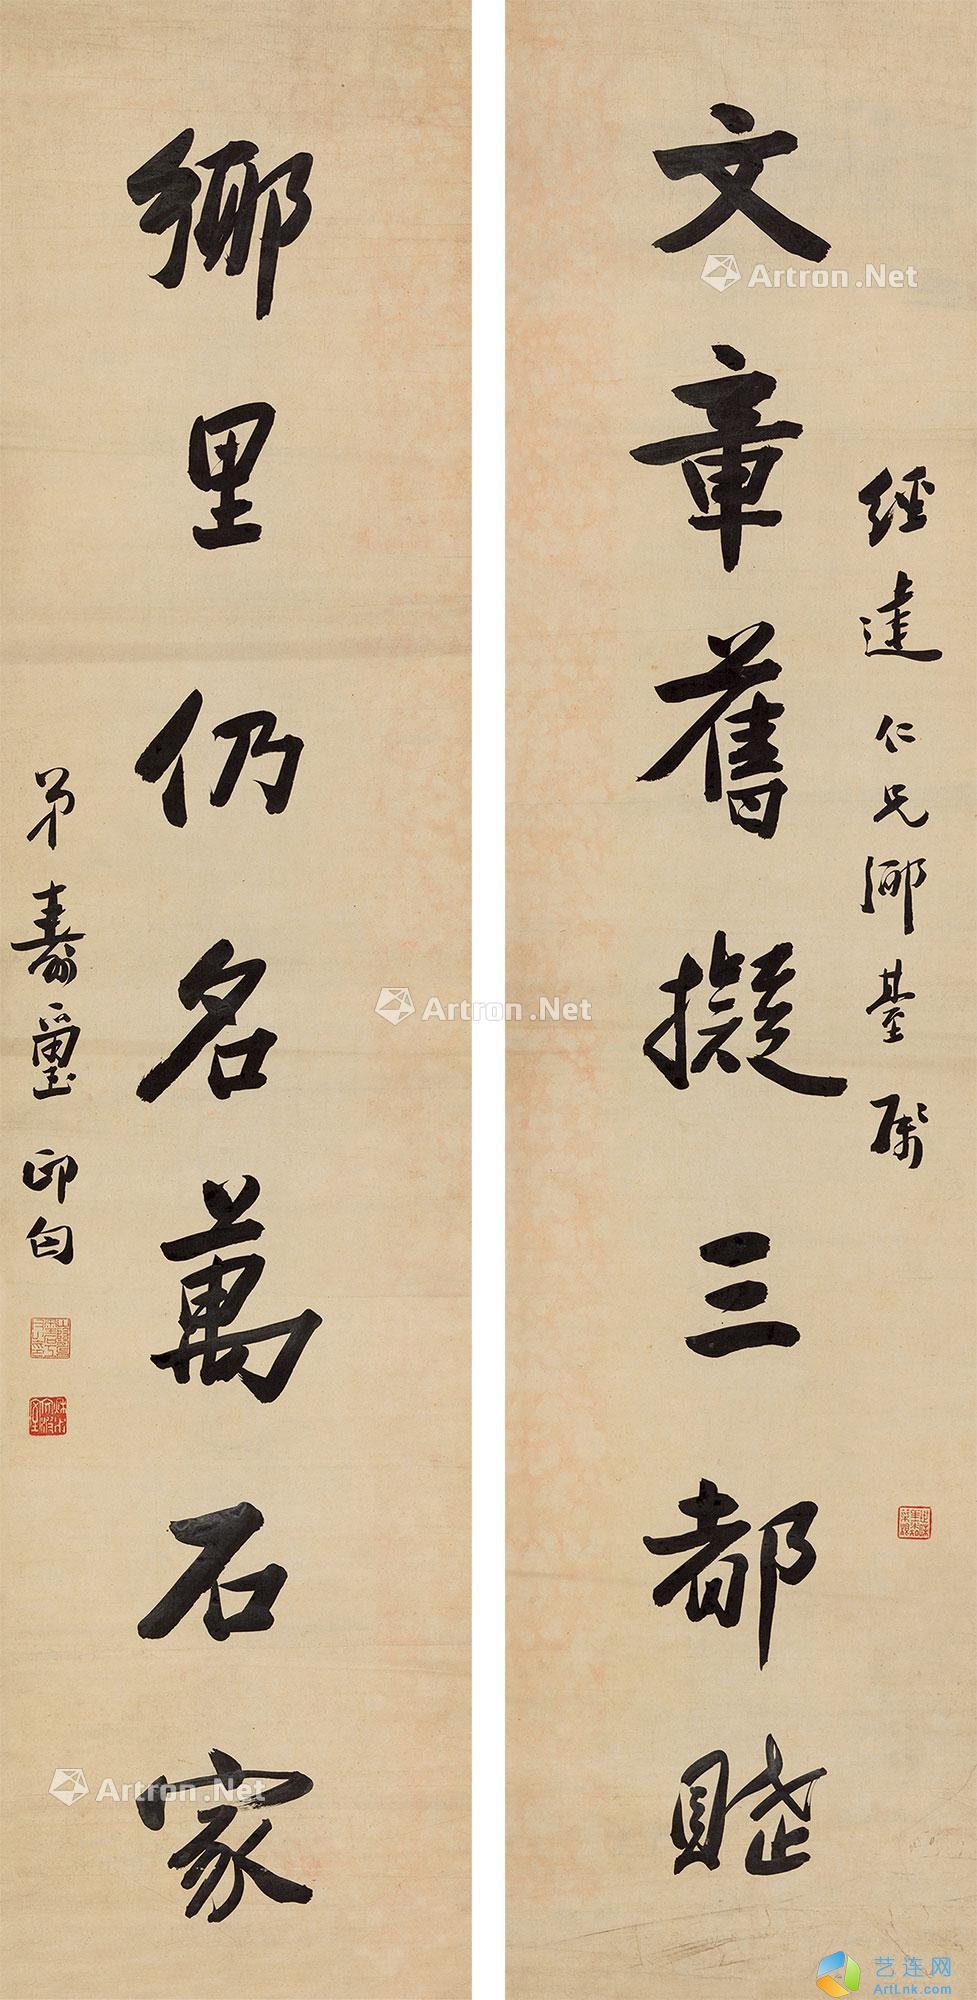 經達仁兄鄉臺屬
文章舊擬三都賦
鄉里仍名萬石家
弟壽璽印匄
Artron.Net
Artron.Net
Artron.Net
艺连网
ArtLnk.com